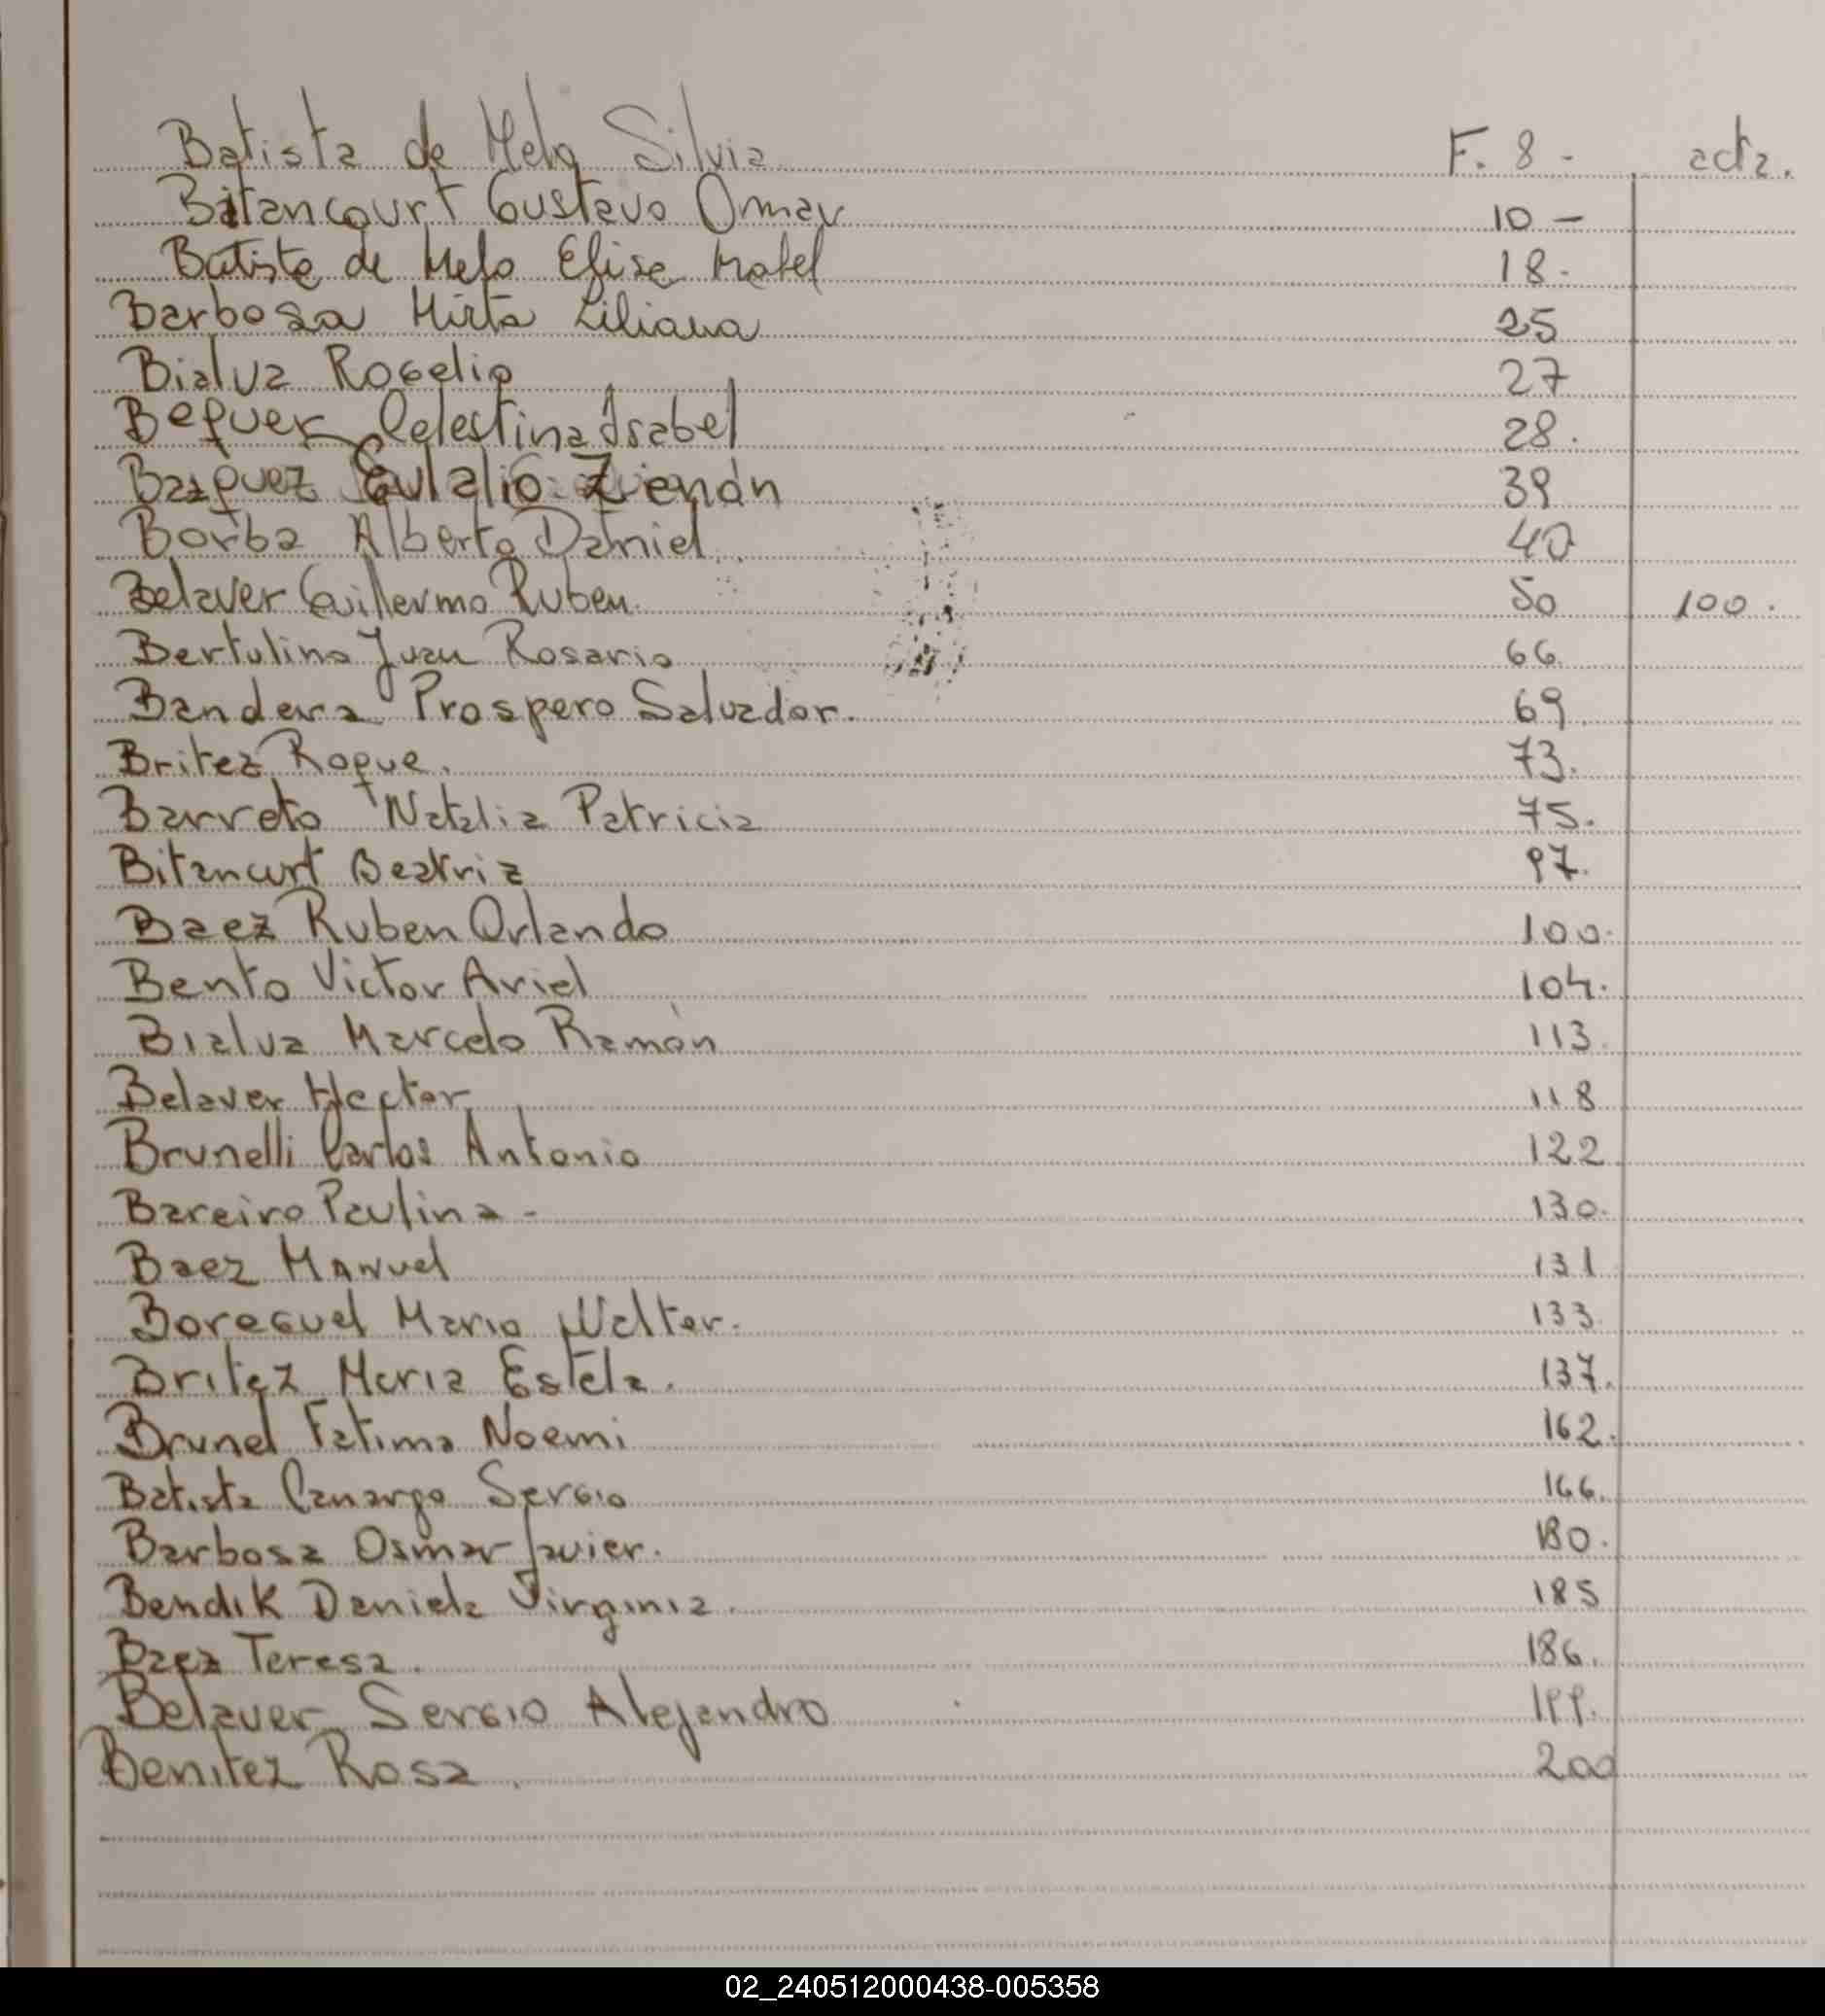 Batista de Melo Silvia F. 8 - acta.
Bitancourt Gustavo Omar 10 -
Batista de Melo Elisa Mabel 18.
Barbosa Mirta Liliana 25
Bialva Rogelio 27
Bequer Celestina Isabel 28.
Bazquez Eulalio Zenón 39
Borba Alberto Daniel 40
Belaver Guillermo Ruben. 50 100.
Bertulino Juan Rosario 66
Bandera Prospero Salvador. 69
Britez Roque. 73.
Barreto Natalia Patricia 75.
Bitancurt Beatriz 97.
Baez Ruben Orlando 100.
Bento Victor Ariel 104.
Bialva Marcelo Ramón 113.
Belaver Hector 118
Brunelli Carlos Antonio 122
Bareiro Paulina - 130.
Baez Manuel 131
Boreguel Mario Walter. 133.
Britez Maria Estela. 137.
Brunel Fatima Noemi 162.
Batista Camargo Sergio 166.
Barbosa Osmar Javier. 180.
Bendik Daniela Virginia. 185
Baez Teresa. 186.
Belaver Sergio Alejandro 199.
Benitez Rosa. 200
02_240512000438-005358